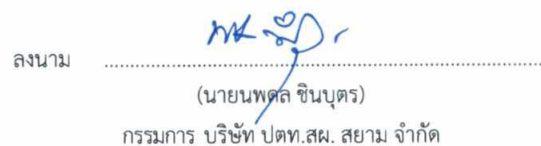 ลงนาม ........................................................................
(นายนพดล ชินบุตร)
กรรมการ บริษัท ปตท.สผ. สยาม จำกัด